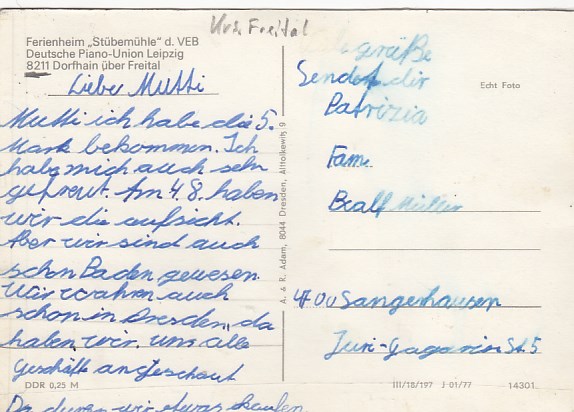 Krs. Freital
Ferienheim „Stübemühle" d. VEB
Deutsche Piano-Union Leipzig
8211 Dorfhain über Freital
Liebe Mutti
Mutti ich habe die 5.
Mark bekommen. Ich
habe mich auch sehr
gefreut. Am 4.8. haben
wir die aufsicht.
Aber wir sind auch
schon Baden gewesen
Wir wahrn auch
schon in Dresden, da
haben wir uns alle
Geschäfte angeschaut
Da durften wir etwas kaufen.
DDR 0,25 M
A. & R. Adam, 8044 Dresden, Altlolkewitz 9
grüße
Sendet dir
Patrizia
Echt Foto
Fam.
Müller
4700 Sangerhausen
Juri-Gagarin St. 5
III/18/197 J 01/77
14301